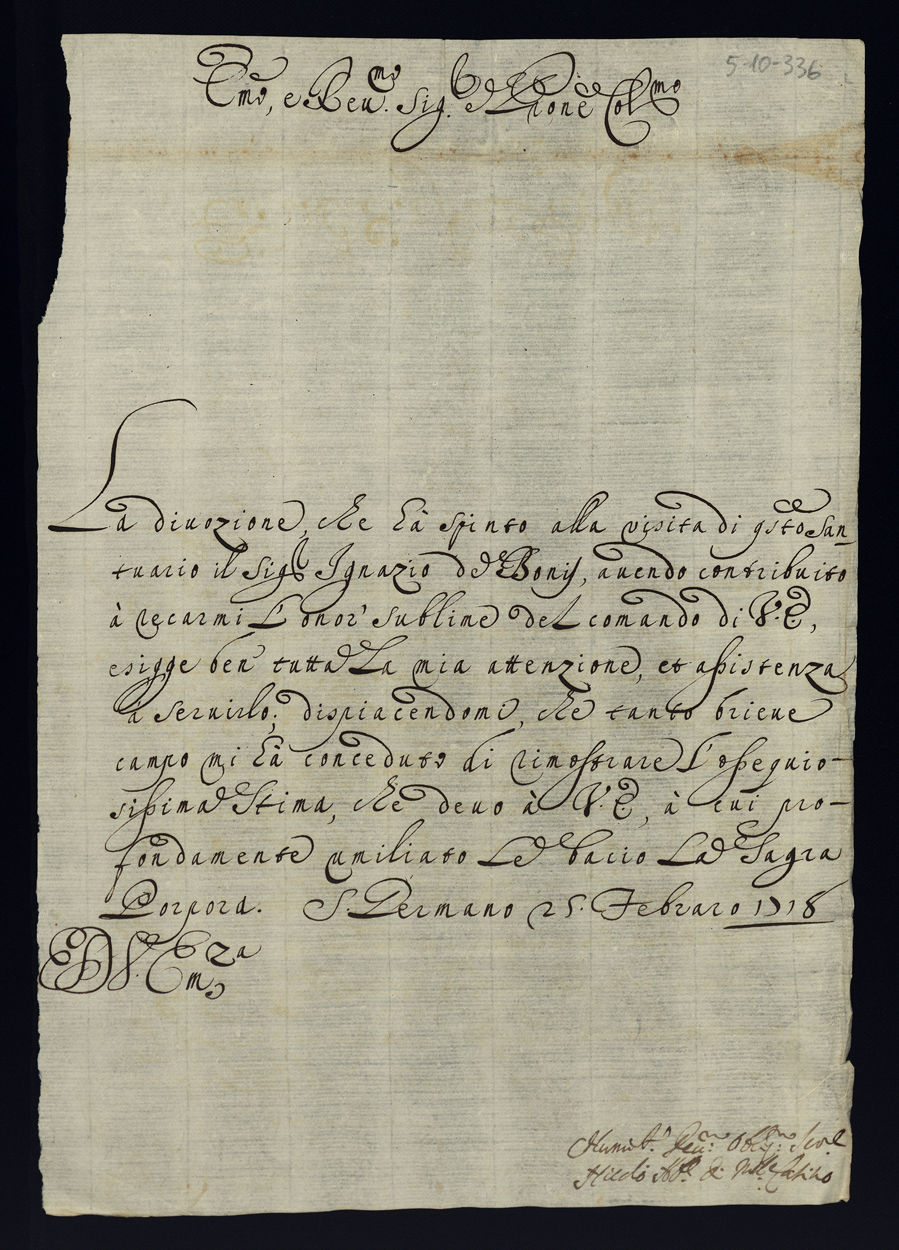 5-10-336
Emo, e Reu.mo Sig.r e Prone Col.mo
La diuozione, che hà spinto alla visita di qsto San-
tuario il Sig.r Ignazio de Bonis, auendo contribuito
à recarmi l'onor' sublime del comando di V. E,
esigge ben' tutta la mia attenzione, et assistenza
à seruirlo; dispiacendomi, che tanto brieue
campo mi hà conceduto di rimostrare l'ossequio-
sissima stima, che deuo à V. E, à cui pro-
fondamente umiliato Le bacio La Sagra
Porpora. S. Germano 25. Febraro 1718
D V. Em.za
Humil.o Deu.mo Oblig.mo Seru.e
Abb.e di M.te Casino